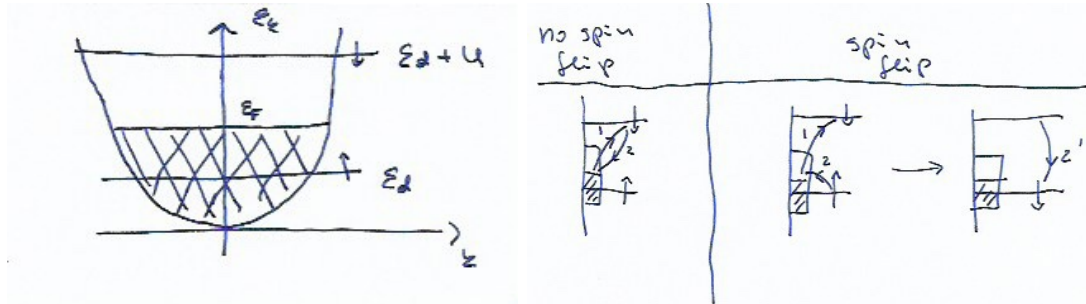 ε_k
↓ ε_d + U
ε_F
↑ ε_d
k
no spin
flip
spin
flip
1
2
1
2
2'